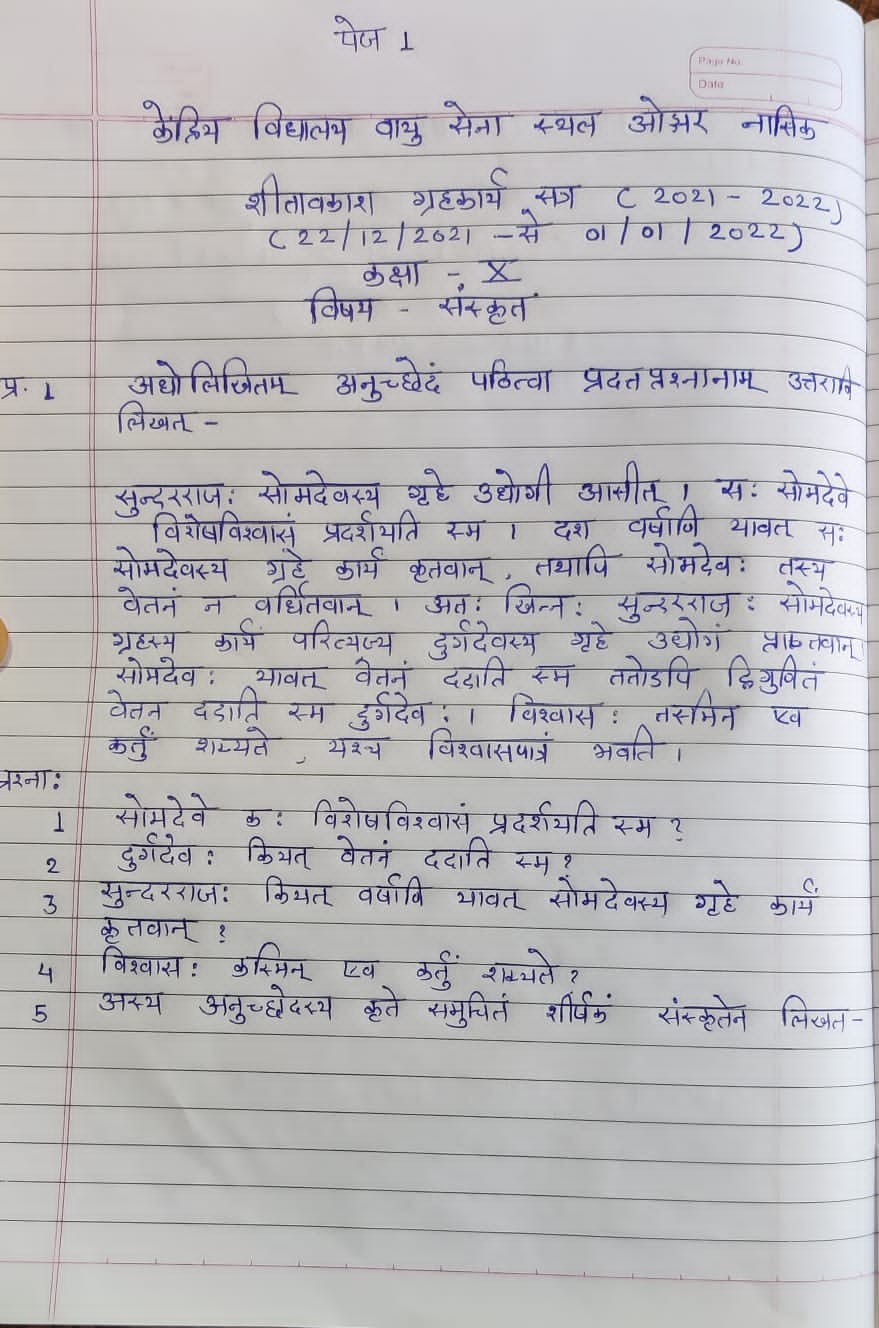 पेज 1
Page No.
Date
केंद्रिय विद्यालय वायु सेना स्थल ओझर नासिक
शीतावकाश ग्रहकार्य सत्र ( 2021 - 2022)
( 22/12/2021 - से 01/01/2022)
कक्षा - X
विषय - संस्कृतं
प्र. 1 अधोलिखितम् अनुच्छेदं पठित्वा प्रदत प्रश्नानाम् उत्तराणि
लिखत् -
सुन्दरराज: सोमदेवस्य गृहे उद्योगी आसीत् । स: सोमदेवे
विशेषविश्वासं प्रदर्शयति स्म । दश वर्षाणि यावत् स:
सोमदेवस्य ग्रहे कार्यं कृतवान्, तथापि सोमदेव: तस्य
वेतनं न वर्धितवान् । अत: खिन्न: सुन्दरराज: सोमदेवस्य
ग्रहस्य कार्यं परित्यज्य दुर्गदेवस्य गृहे उद्योगं प्राप्तवान्
सोमदेव: यावत् वेतनं ददाति स्म ततोडपि द्विगुणितं
वेतन ददाति स्म दुर्गदेव: । विश्वास: तस्मिन एव
कर्तुं शक्यते , यश्च विश्वासपात्रं भवति ।
प्रश्ना:
1 सोमदेवे क: विशेषविश्वासं प्रदर्शयति स्म ?
2 दुर्गदेव: कियत् वेतनं ददाति स्म ?
3 सुन्दरराज: कियत् वर्षाणि यावत् सोमदेवस्य गृहे कार्यं
कृतवान् ?
4 विश्वास: कस्मिन् एव कर्तुं शक्यते ?
5 अस्य अनुच्छेदस्य कृते समुचितं शीर्षकं संस्कृतेन लिखत -